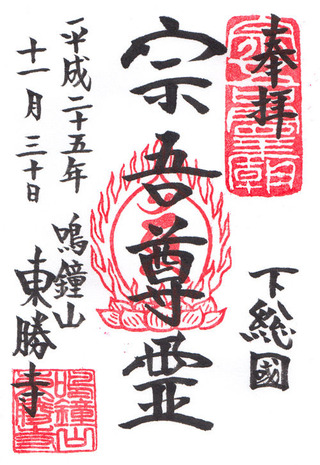 奉拝
下総國
宗吾尊霊
鳴鐘山
東勝寺
平成二十五年
十一月三十日
鳴鐘山
東勝寺